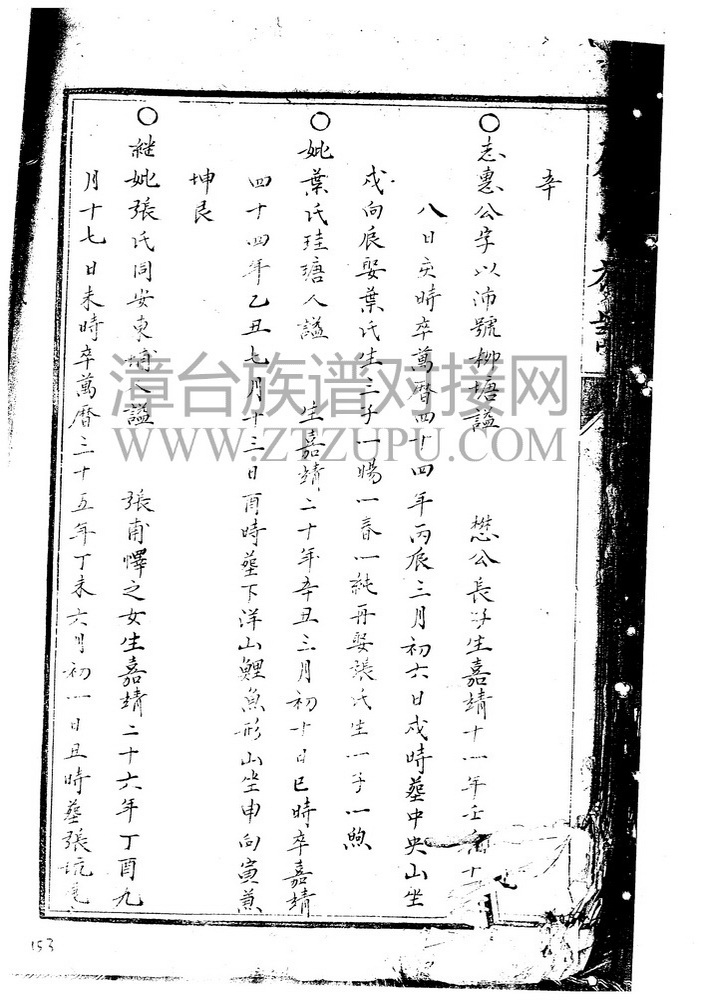 辛
○志惠公字以沛號柳塘謚 懋公長子生嘉靖十一年壬 十
八日亥時卒萬曆四十四年丙辰三月初六日戍時塟中央山坐
戍向辰娶葉氏生三子一暘一春一純再娶張氏生一子一煦
○妣葉氏珪瑭人謚 生嘉靖二十年辛丑三月初十日巳時卒嘉靖
四十四年乙丑七月十三日酉時塟下洋山鯉魚形山坐申向寅兼
坤艮
○継妣張氏同安東埔人謚 張甫懌之女生嘉靖二十六年丁酉九
月十七日未時卒萬曆三十五年丁未六月初一日丑時塟張坑尾
漳台族谱对接网
WWW.ZTZUPU.COM
153